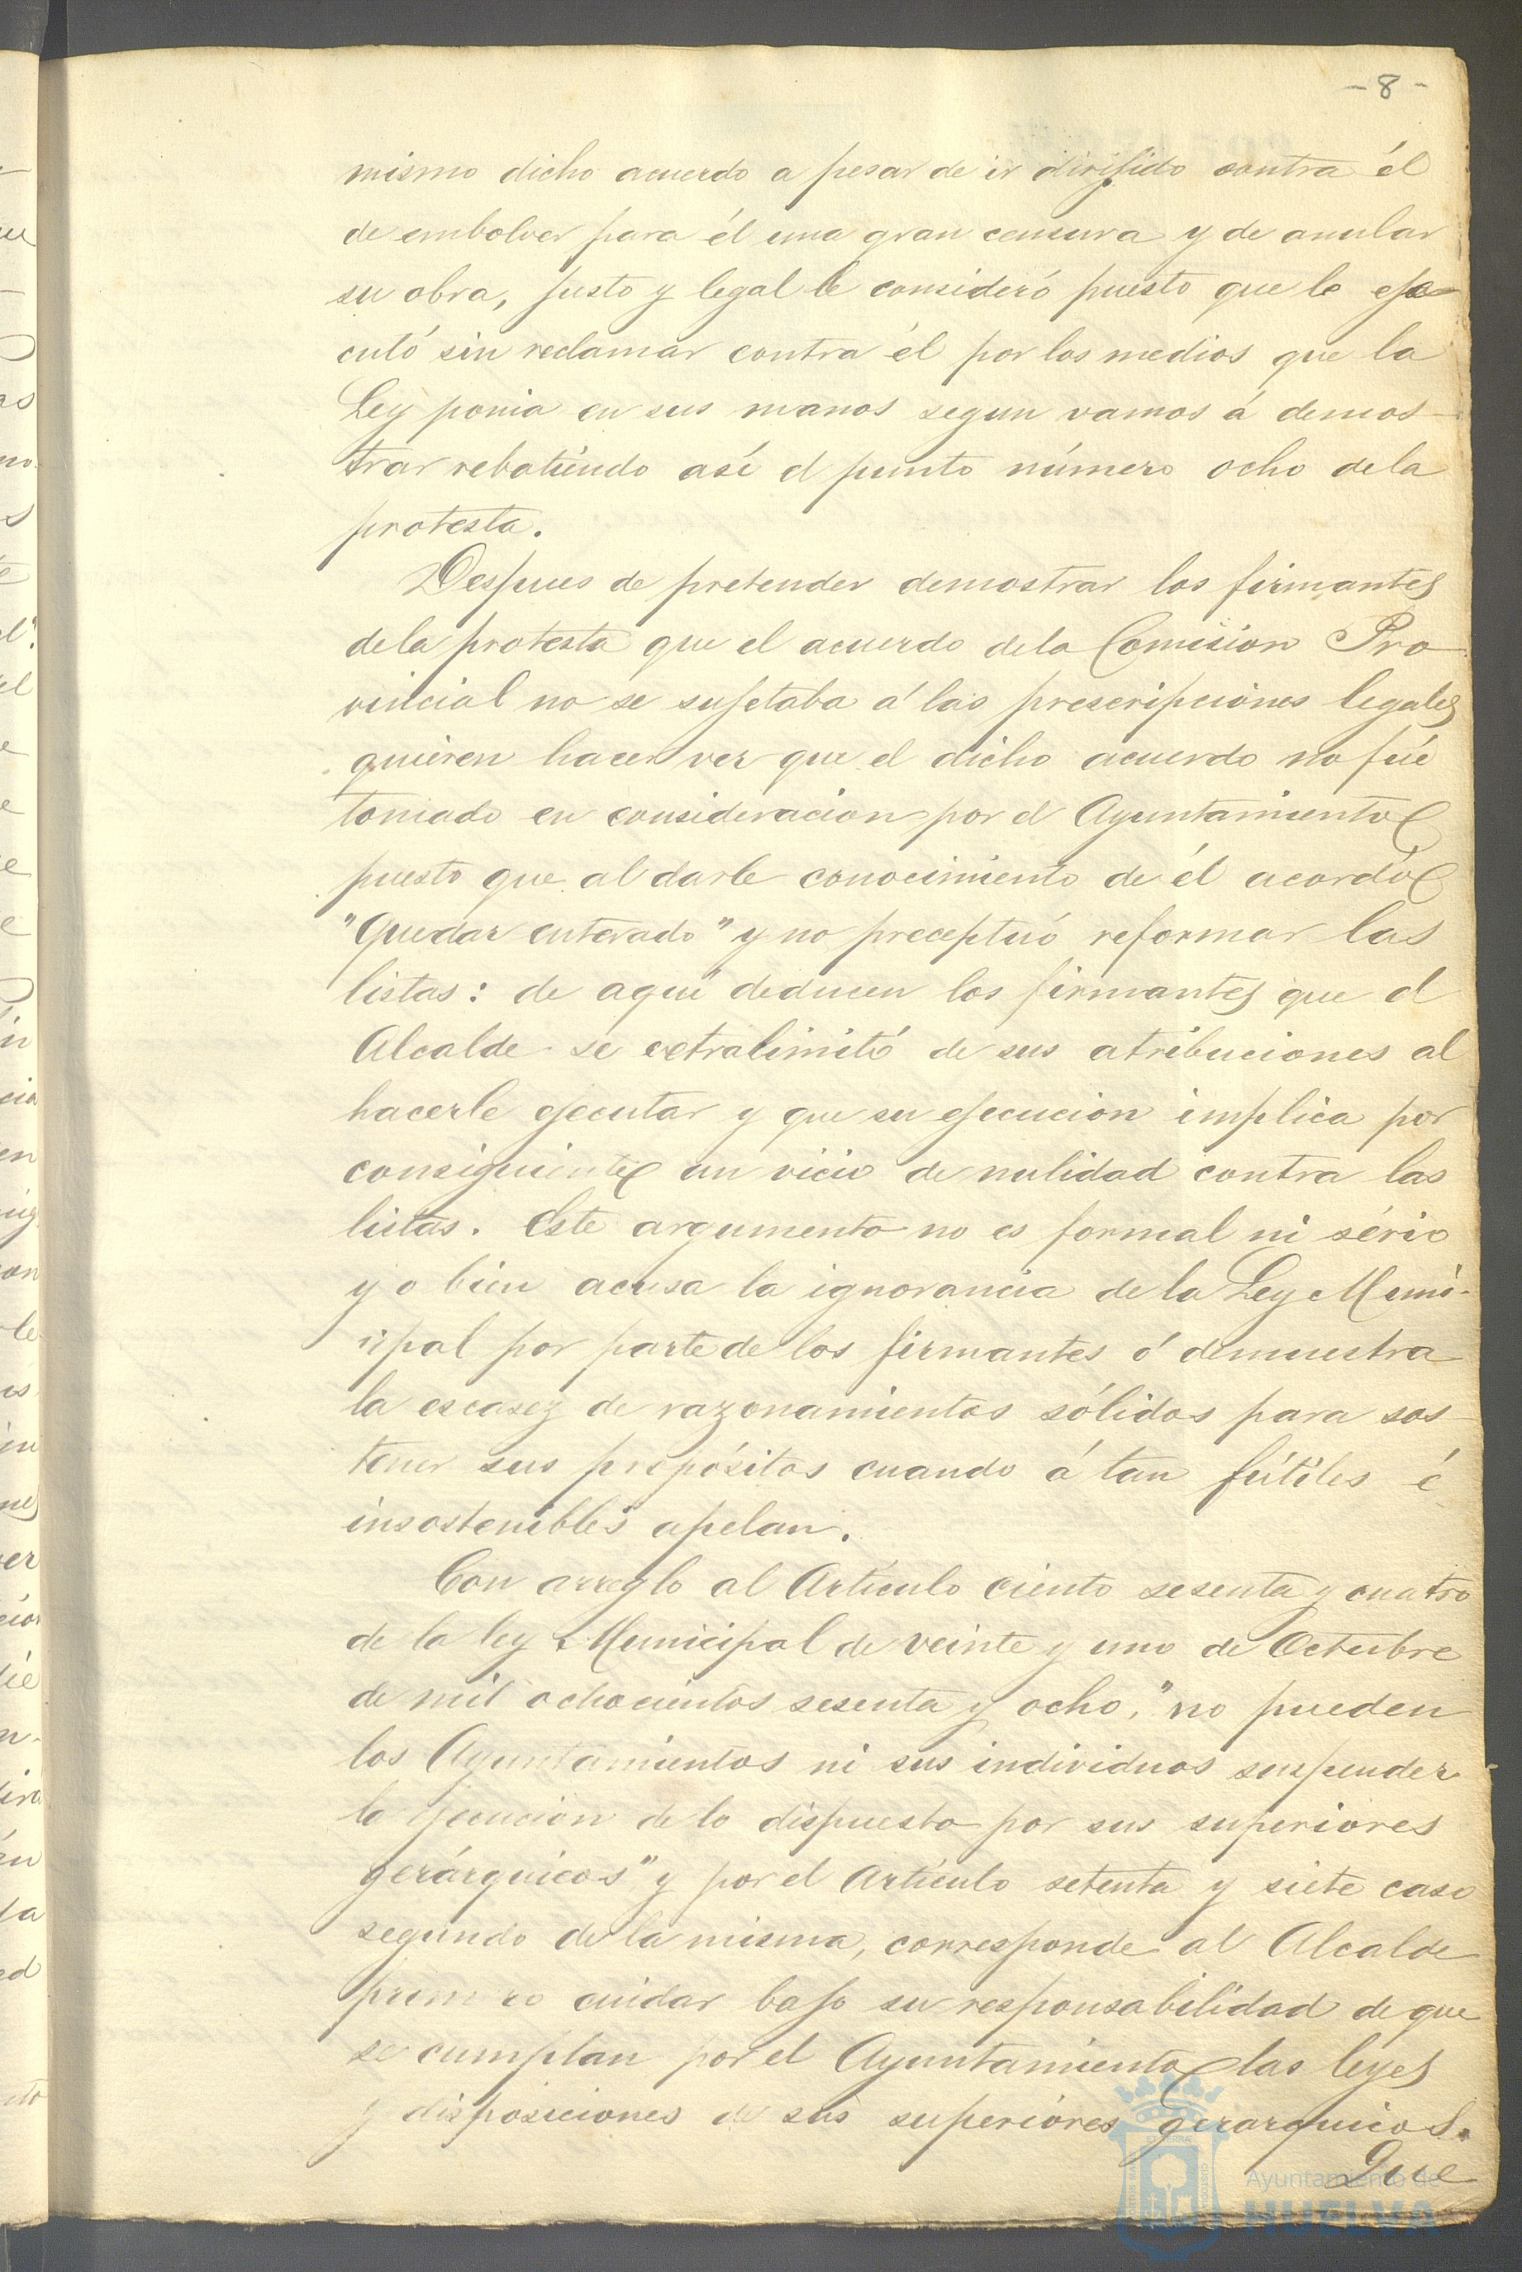 -8-
mismo dicho acuerdo a pesar de ir dirijido contra él
de embolver para él una gran censura y de anular
su obra, justo y legal le consideró puesto que le eje-
cutó sin reclamar contra él por los medios que la
Ley ponia en sus manos segun vamos á demos-
trar rebatiendo asi el punto número ocho de la
protesta.
Despues de pretender demostrar los firmantes
de la protesta que el acuerdo de la Comision Pro
vincial no se sujetaba á las prescripciones legales
quieren hacer ver que el dicho acuerdo no fué
tomado en consideracion por el Ayuntamiento
puesto que al darle conocimiento de él acordó
"Quedar enterado" y no preceptuó reformar las
listas: de aqui deducen los firmantes que el
Alcalde se extralimitó de sus atribuciones al
hacerle ejecutar y que su ejecucion implica por
consiguiente un vicio de nulidad contra las
listas. Este argumento no es formal ni sério
y o bien acusa la ignorancia de la Ley Muni-
cipal por parte de los firmantes ó demuestra
la escasez de razonamientos sólidos para sos-
tener sus propósitos cuando á tan fútiles é
insostenibles apelan.
Con arreglo al Artículo ciento sesenta y cuatro
de la ley Municipal de veinte y uno de Octubre
de mil ochocientos sesenta y ocho, "no pueden
los Ayuntamientos ni sus individuos suspender
la ejecucion de lo dispuesto por sus superiores
gerárquicos" y por el Artículo setenta y siete caso
segundo de la misma, corresponde al Alcalde
primero cuidar bajo su responsabilidad de que
se cumplan por el Ayuntamiento las leyes
y disposiciones de sus superiores gerarquicos.
Que
Ayuntamiento de
HUELVA